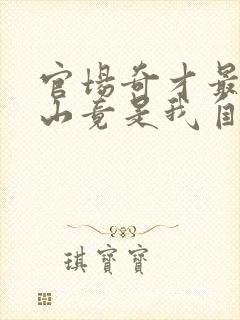 官場奇才最
山竟是我自
琪寶寶